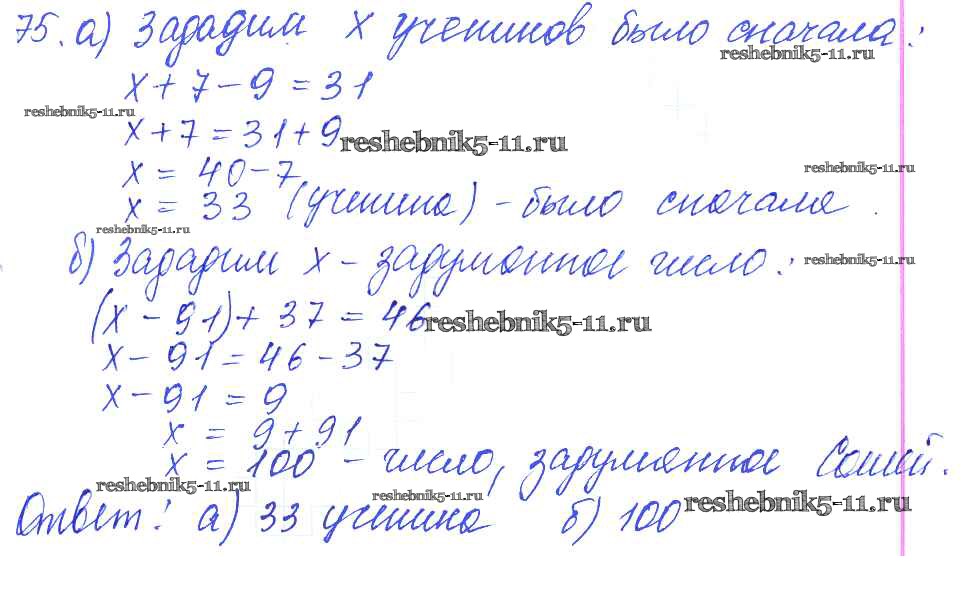 75. а) Зададим x учеников было сначала:
reshebnik5-11.ru
x + 7 - 9 = 31
reshebnik5-11.ru
x + 7 = 31 + 9
reshebnik5-11.ru
x = 40 - 7
reshebnik5-11.ru
x = 33 (ученика) - было сначала.
reshebnik5-11.ru
б) Зададим x - задуманное число:
reshebnik5-11.ru
(x - 91) + 37 = 46
reshebnik5-11.ru
x - 91 = 46 - 37
x - 91 = 9
x = 9 + 91
x = 100 - число, задуманное Сашей.
reshebnik5-11.ru
reshebnik5-11.ru
Ответ: а) 33 ученика б) 100
reshebnik5-11.ru